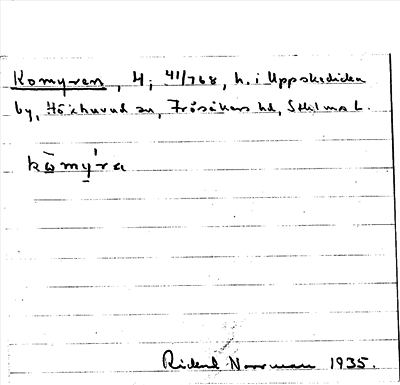 Komyren, 4; 41/768, h. i Uppskedicka
by, Häverö sn, Frösåkers hd, Sthlms L.
kòmy̱´ra
Rickard Norrman 1935.